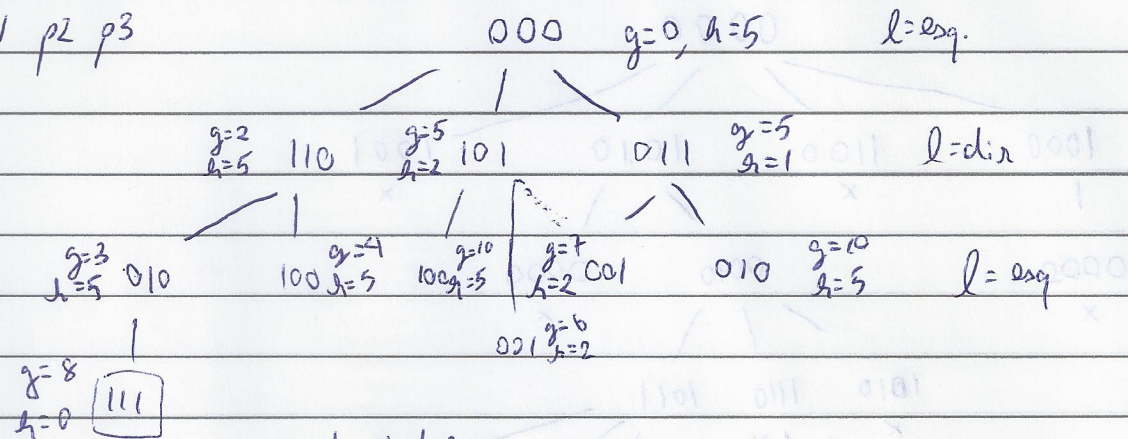 p2 p3 000 g=0, h=5 l=esq.
g=2 h=5 110 g=5 h=2 101 011 g=5 h=1 l=dir
g=3 h=5 010 100 g=4 h=5 100 g=10 h=5 g=7 h=2 001 010 g=10 h=5 l=esq
001 g=6 h=2
g=8 h=0 111